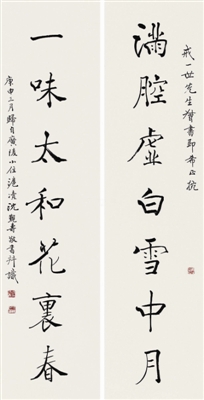 戒一世先生督書即希正捥
滿腔虛白雪中月
一味太和花裏春
庚申二月歸自廣陵小住滬凟沈觀壽敬書并識